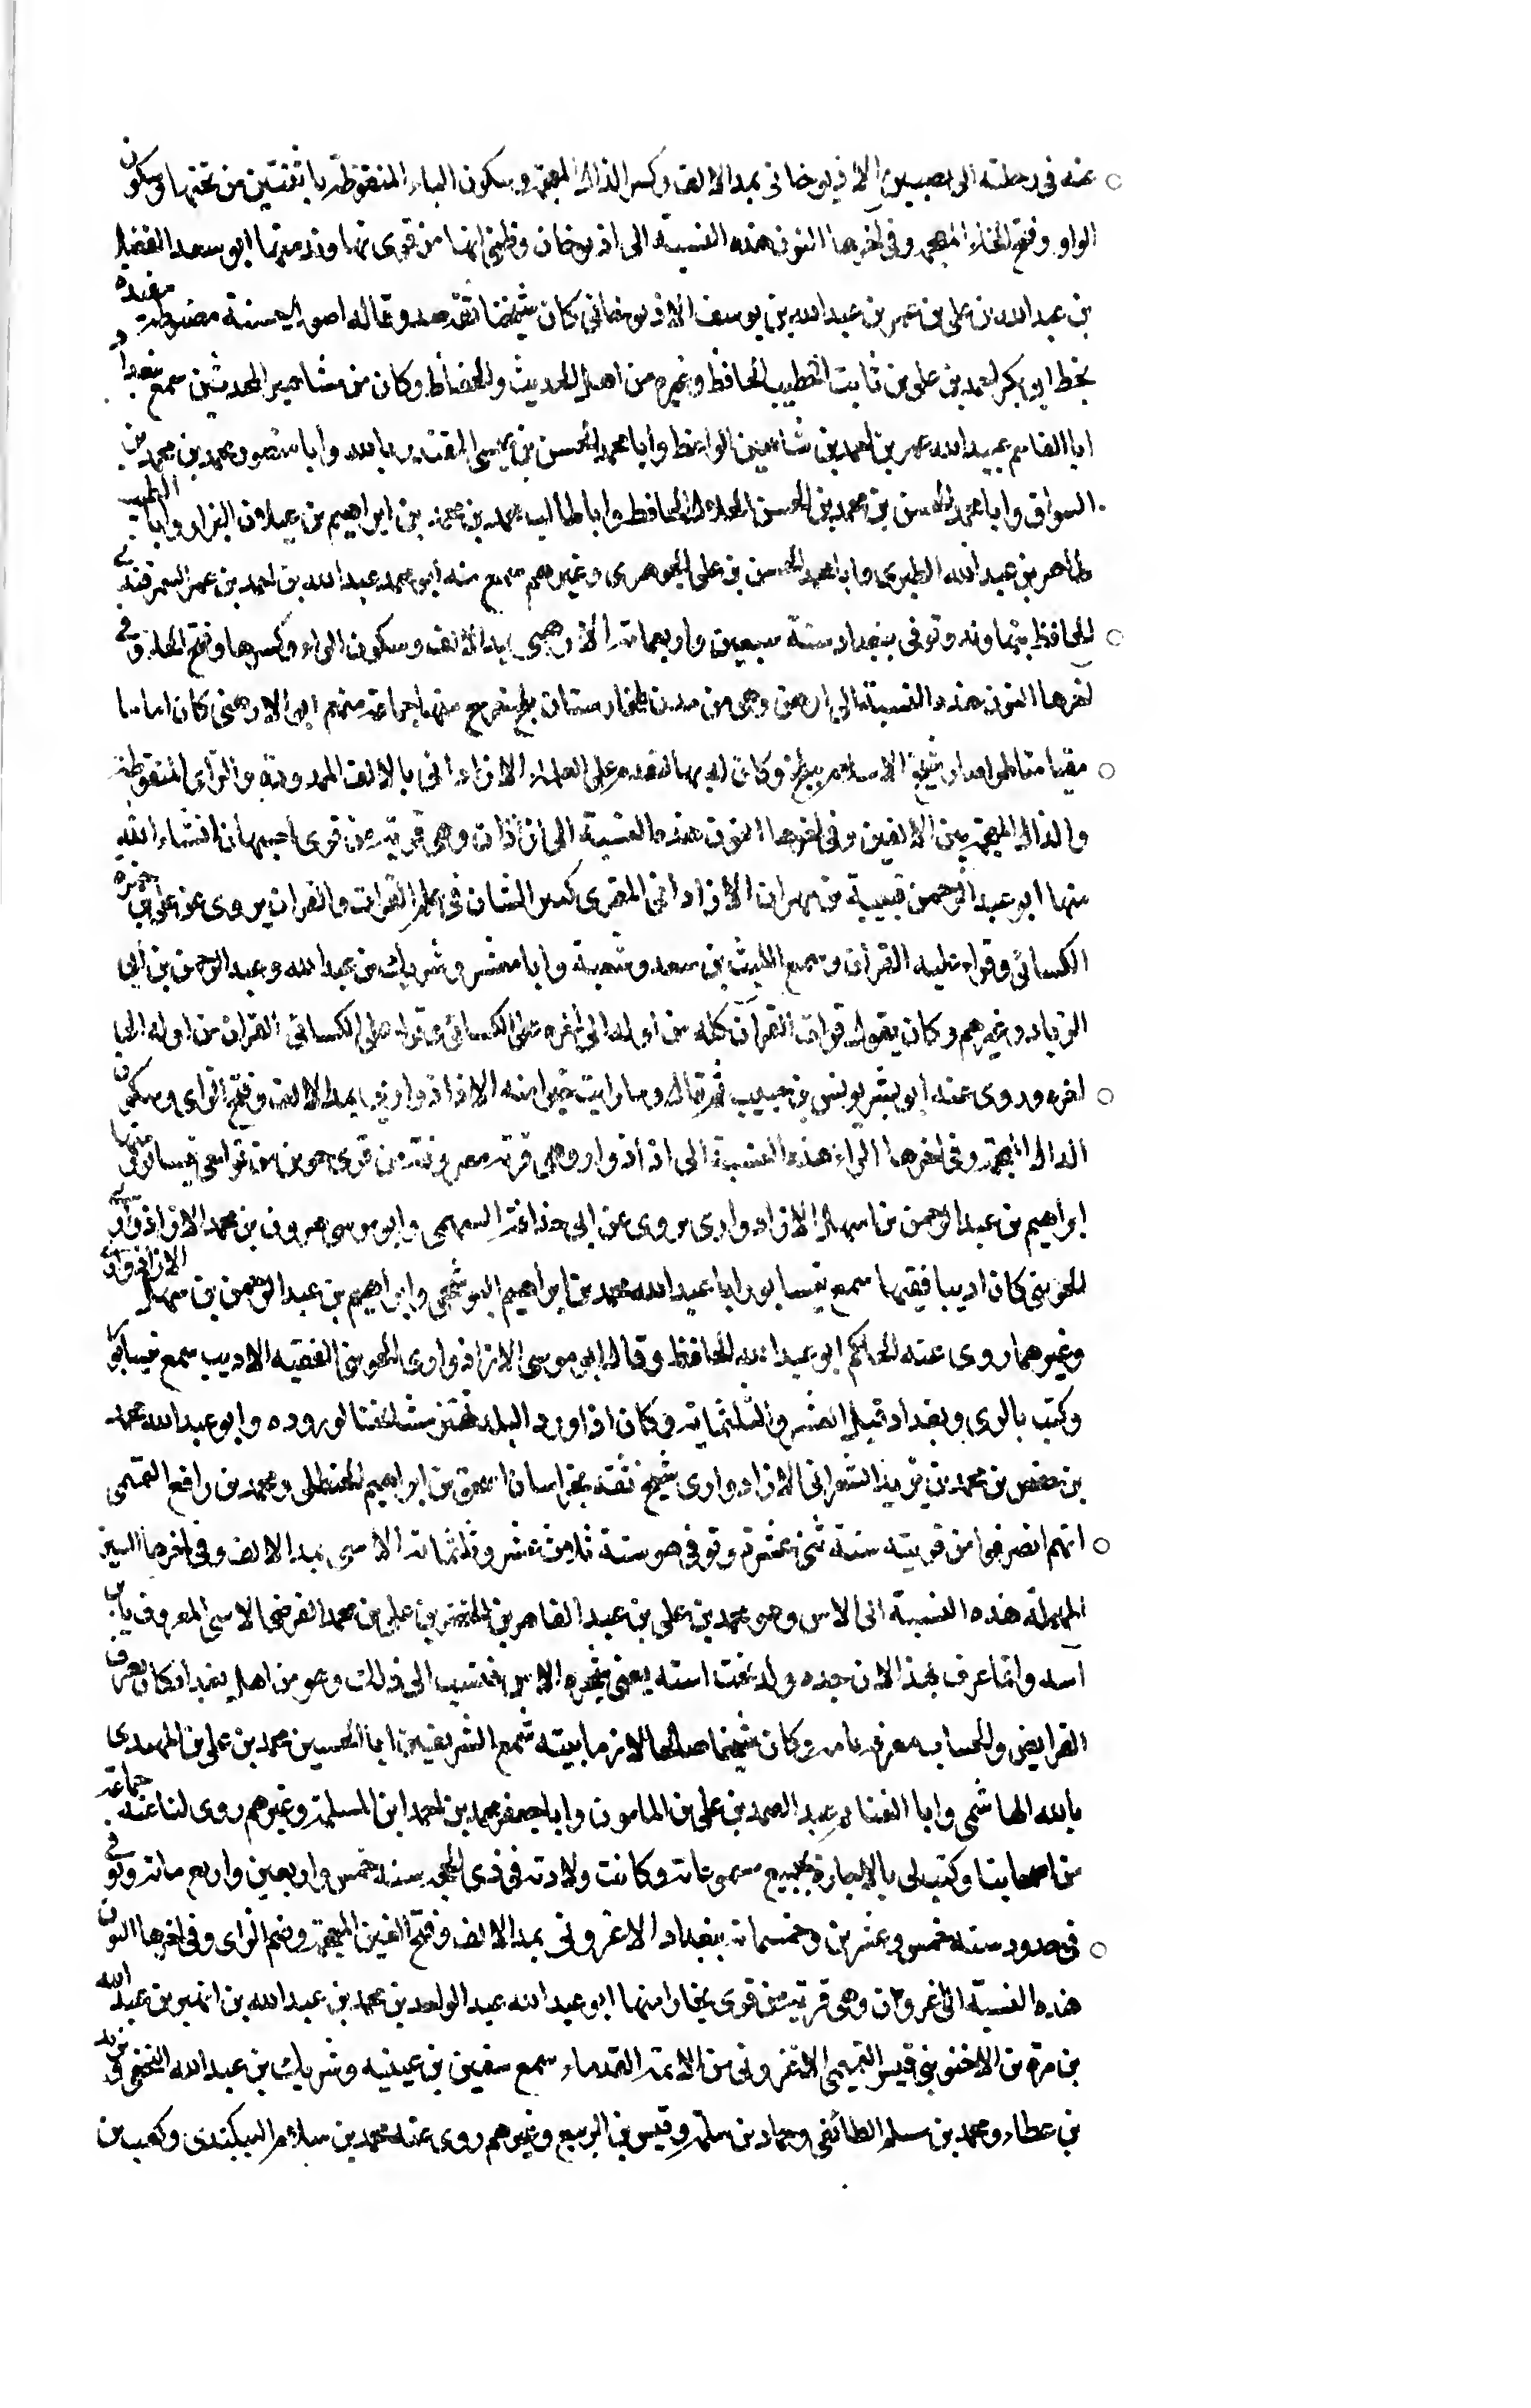 عنه في رحلته الى نصيبين الاذيوخاني بمد الالف وكسر الذال المعجمة وسكون الياء المنقوطة باثنتين من تحتها وسكون
الواو وفتح الخاء المعجمة وفي آخرها النون هذه النسبة الى اذيوخان وظني انها من قرى نهاوند منها ابو سعد الفضل
بن عبد الله بن علي بن عمر بن عبد الله بن يوسف الاذيوخاني كان شيخا ثقة صدوقا له اصول حسنة مضبوطة مفيدة
بخط ابو بكر احمد بن علي بن ثابت الخطيب الحافظ وغيره من اهل الحديث والحفاظ وكان من مشاهير المحدثين سمع ببغداد
ابا القاسم عبيد الله عمر بن احمد بن شاهين الواعظ وابا محمد الحسن بن عيسى المقتدر بالله وابا منصور محمد بن محمد بن
السواق وابا محمد الحسن بن محمد بن الحسن الخلال الحافظ وابا طالب محمد بن محمد بن ابراهيم بن غيلان البزار وابا الطيب
طاهر بن عبد الله الطبري وابا محمد الحسن بن علي الجوهري وغيرهم سمع منه ابو محمد عبد الله بن احمد بن عمر السمرقندي
الحافظ بنهاوند وتوفي ببغداد سنة سبعين واربعمائة الارهني بمد الالف وسكون الراء وكسرها وفتح الهاء وفي
اخرها النون هذه النسبة الى ارهن وهي من مدن طخارستان بلخ خرج منها جماعة منهم ابو الارهني كان اماما
مفتيا مناظرا شيخ الاسلام ببلخ وكان له بها التقدم على العلماء الازاذاني بالالف الممدودة والزاى المنقوطة
والذال المعجمة بين الالفين وفي اخرها النون هذه النسبة الى ازاذان وهي قرية من قرى اصبهان ان شاء الله
منها ابو عبد الرحمن قتيبة بن مهران الازاذاني المقرى كبير الشان في علم القرات والقران يروى عن علي بن حمزة
الكسائي وقرا عليه القرآن وسمع الليث بن سعد وشعبة وابا معشر وشريك بن عبد الله وعبد الرحمن بن أبي
الزناد وغيرهم وكان يقول قرات القرآن كله من اوله الى اخره على الكسائي وقرا علي الكسائي القران من اوله الى
اخره وروى عنه ابو بشر يونس بن حبيب ثم قال وما رايت خيرا منه الازاذواري بمد الالف وفتح الزاى وسكون
الذال المعجمة وفي اخرها الراء هذه النسبة الى ازاذوار وهي قرية معروفة من قرى جوين من نواحي نيسابور منها
ابراهيم بن عبد الرحمن بن سهل الازاذواري يروى عن ابى حذافة السهمى وابو موسى هرون بن محمد الازاذواري
الجويني كان اديبا فقيها سمع نيسابور ابا عبد الله محمد بن ابراهيم البوشنجي وابراهيم بن عبد الرحمن بن سهل الازاذواري
وغيرهما روى عنه الحاكم ابو عبد الله الحافظ وقال ابو موسى الازاذواري الجويني الفقيه الاديب سمع نيسابور
وكتب بالرى وبغداد قبل العشر والثلثمائة وكان اذا ورد البلد تهتز مشايخنا لوروده وابو عبد الله محمد
بن حفص بن محمد بن يزيد الشعراني الازاذوارى شيخ ثقة بخراسان اسحق بن ابراهيم الحنظلي ومحمد بن رافع القشيرى
انهم انصرفوا من قريته سنة عشرة وتوفي هو سنة ثلاث عشر وثلثمائة الاسى بمد الالف وفي اخرها السين
المهملة هذه النسبة الى الاس وهو محمد بن على بن عبد القاهر بن الخضر بن علي بن محمد الفرضي الاسي المعروف بابن
آسه وانما عرف بهذا لان جده ولد تحت اسة يعني شجرة الاس فنسب الى ذلك وهو من اهل بغداد كان يعرف
الفرايض والحساب معرفة تامة وكان شيخا صالحا لازما بيته سمع الشريفين ابا الحسين محمد بن على بن المهتدى
بالله الهاشمي وابا الغنائم عبد الصمد بن على بن المامون وابا جعفر محمد بن احمد ابن المسلمة وغيرهم روى لنا عنه جماعة
من اصحابنا وكتب لي بالاجازة بجميع مسموعاته وكانت ولادته في ذى الحجة سنة خمس واربعين واربع مائة وتوفي
في حدود سنة خمس وعشرين وخمسمائة ببغداد الاغزوني بمد الالف وفتح الغين المعجمة وضم الزاى وفي اخرها النون
هذه النسبة الى اغزون وهي قرية من قرى بخارا منها ابو عبد الله عبد الواحد بن محمد بن عبد الله بن ايمن بن عبد الله
بن مرة بن الاحنف بن قيس التميمي الاغزوني من الائمة القدماء سمع سفين بن عيينه وشريك بن عبد الله النخعي ويزيد
بن عطاء ومحمد بن مسلم الطائفي وحماد بن سلمة وقيس بن الربيع وغيرهم روى عنه محمد بن سلام البيكندى وكعب بن